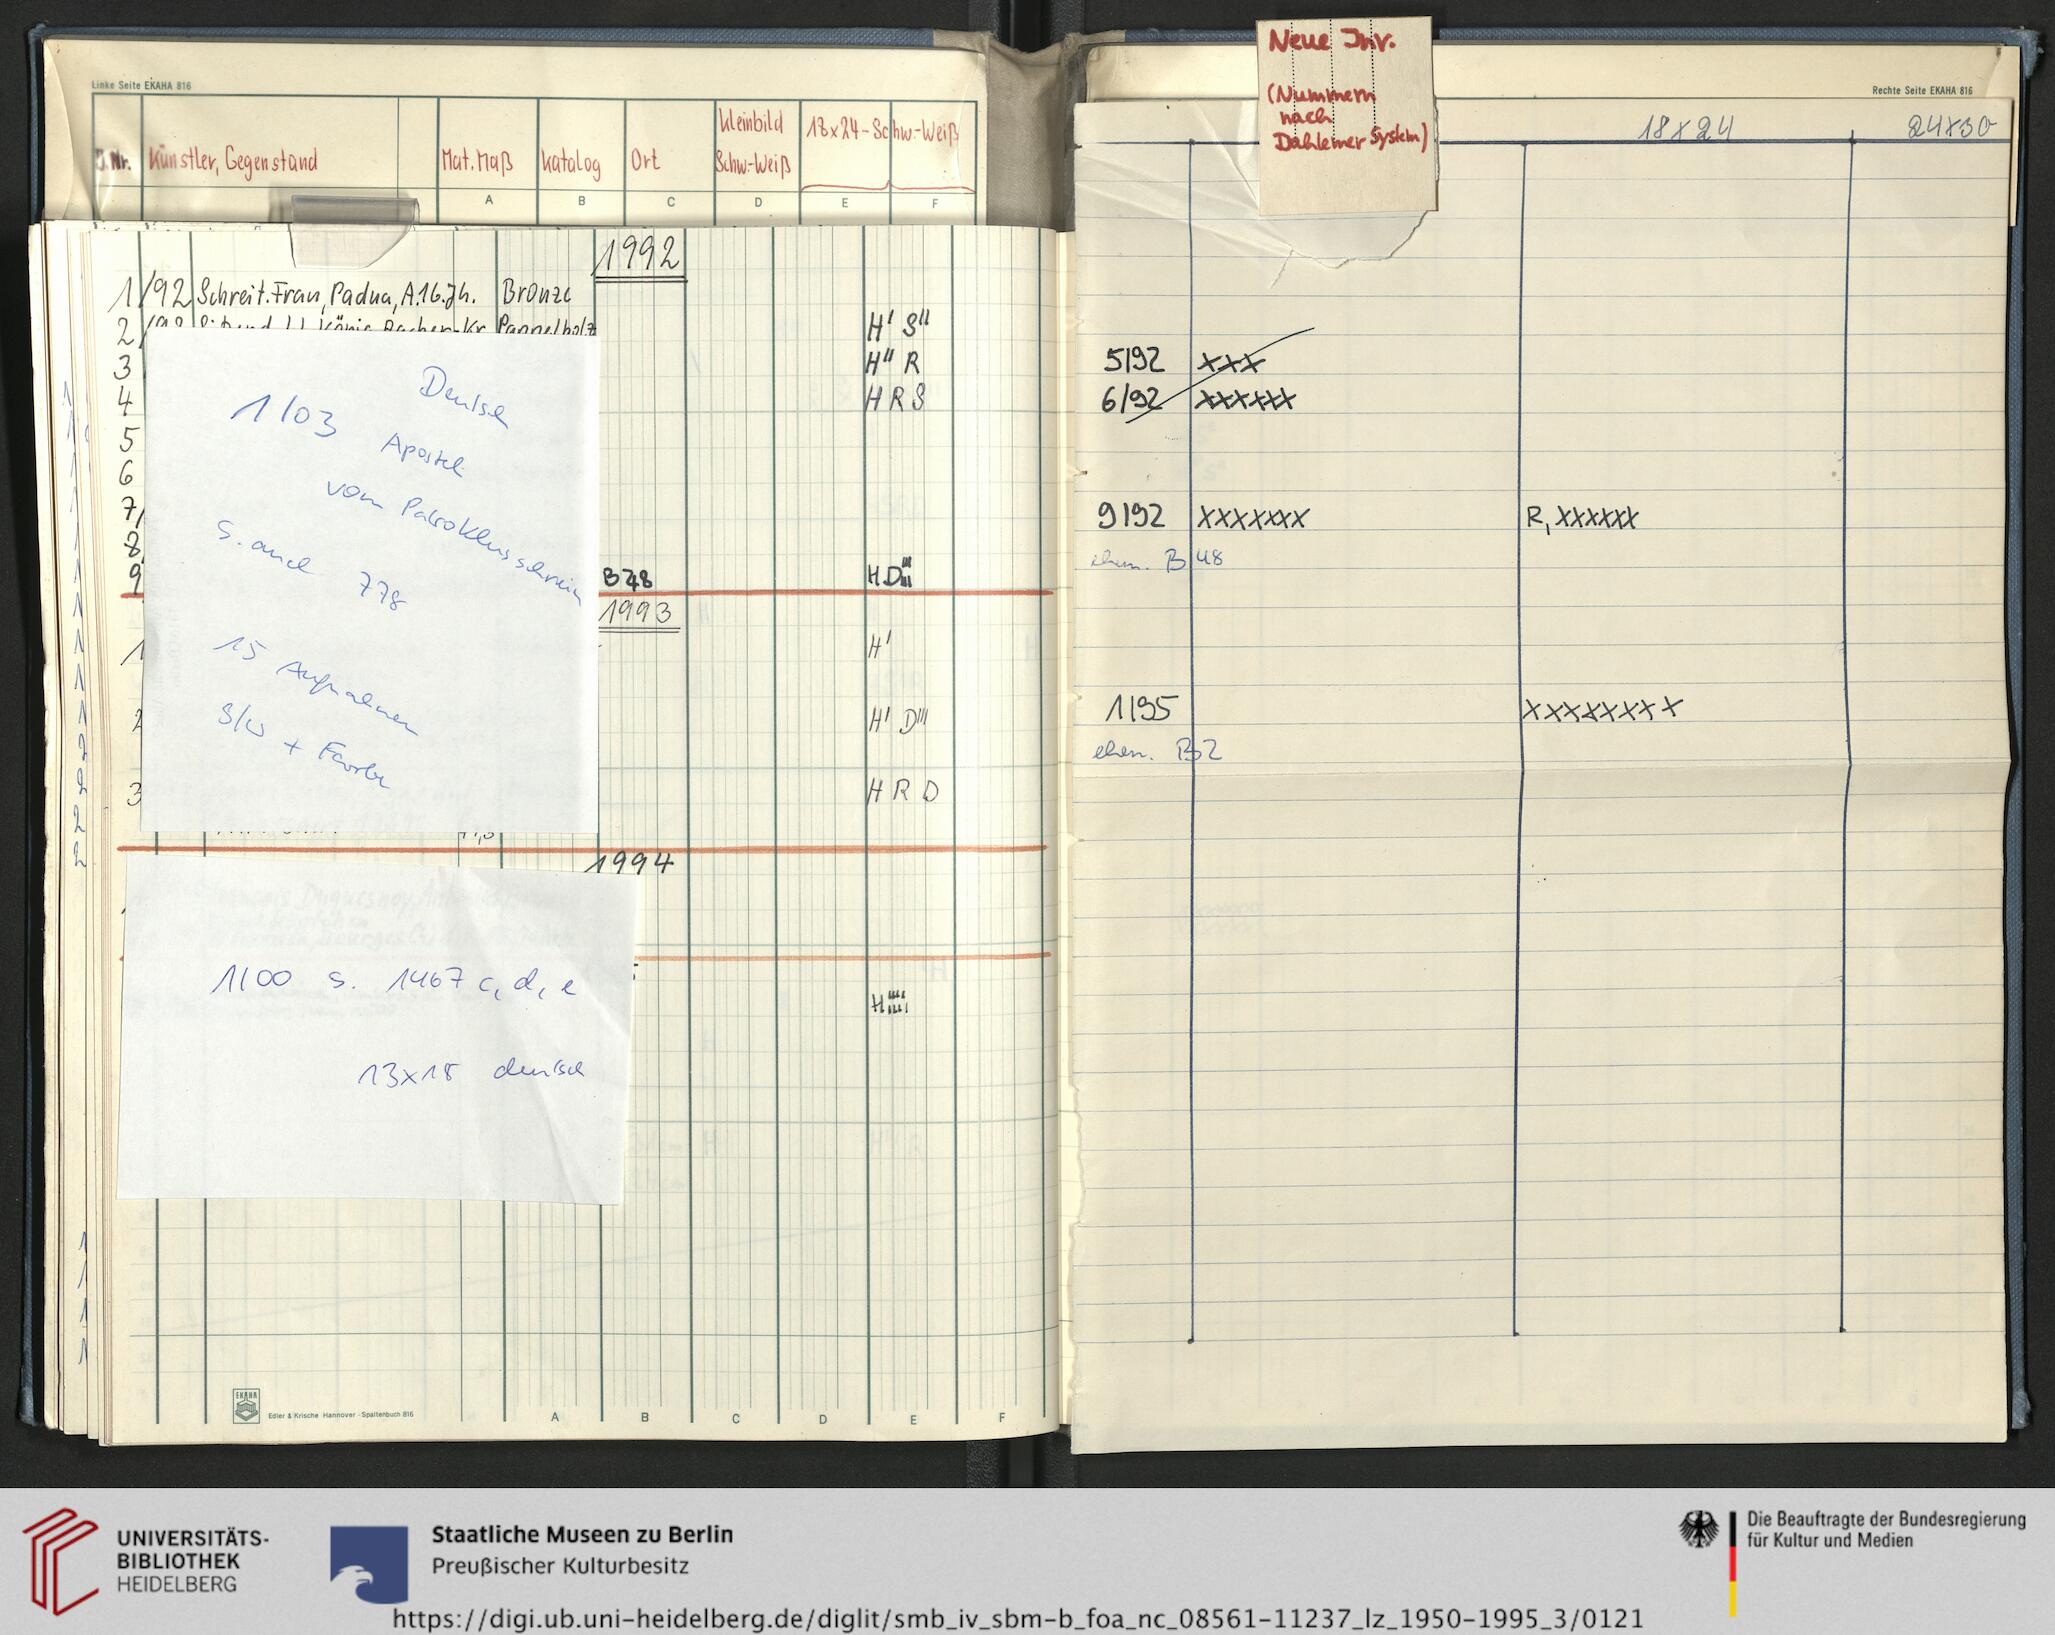 Linke Seite EKAHA 816
J.Nr.
Künstler, Gegenstand
Mat. Maß
Katalog
Ort
Kleinbild
Schw.-Weiß
18x24-Schw-Weiß
A B C D E F
1992
1/92 Schreit. Frau, Padua, A.16.Jh. Bronze
2 Pappelholz H' S''
3 H'' R
4 H R S
5
6
7/
8
9 B 48 H D
1993
1 H'
2 H' D'''
3 H R D
1994
H
Deutsch
1/03 Apostel
vom Patroklusschrein
s. auch 778
15 Aufnahmen
S/W + Farbe
1/00 s. 1467 c, d, e
13x18 deutsch
EKAHA
Edler & Krische Hannover - Spaltenbuch 816
A B C D E F
Neue Inv.
(Nummern
nach
Dahlemer System)
Rechte Seite EKAHA 816
18x24 24x30
5/92 xxx
6/92 xxxxxx
9/92 xxxxxxx R, xxxxxx
ehem. B 48
1/95 xxxxxxxx
ehem. B 2
UNIVERSITÄTS-
BIBLIOTHEK
HEIDELBERG
Staatliche Museen zu Berlin
Preußischer Kulturbesitz
Die Beauftragte der Bundesregierung
für Kultur und Medien
https://digi.ub.uni-heidelberg.de/diglit/smb_iv_sbm-b_foa_nc_08561-11237_lz_1950-1995_3/0121